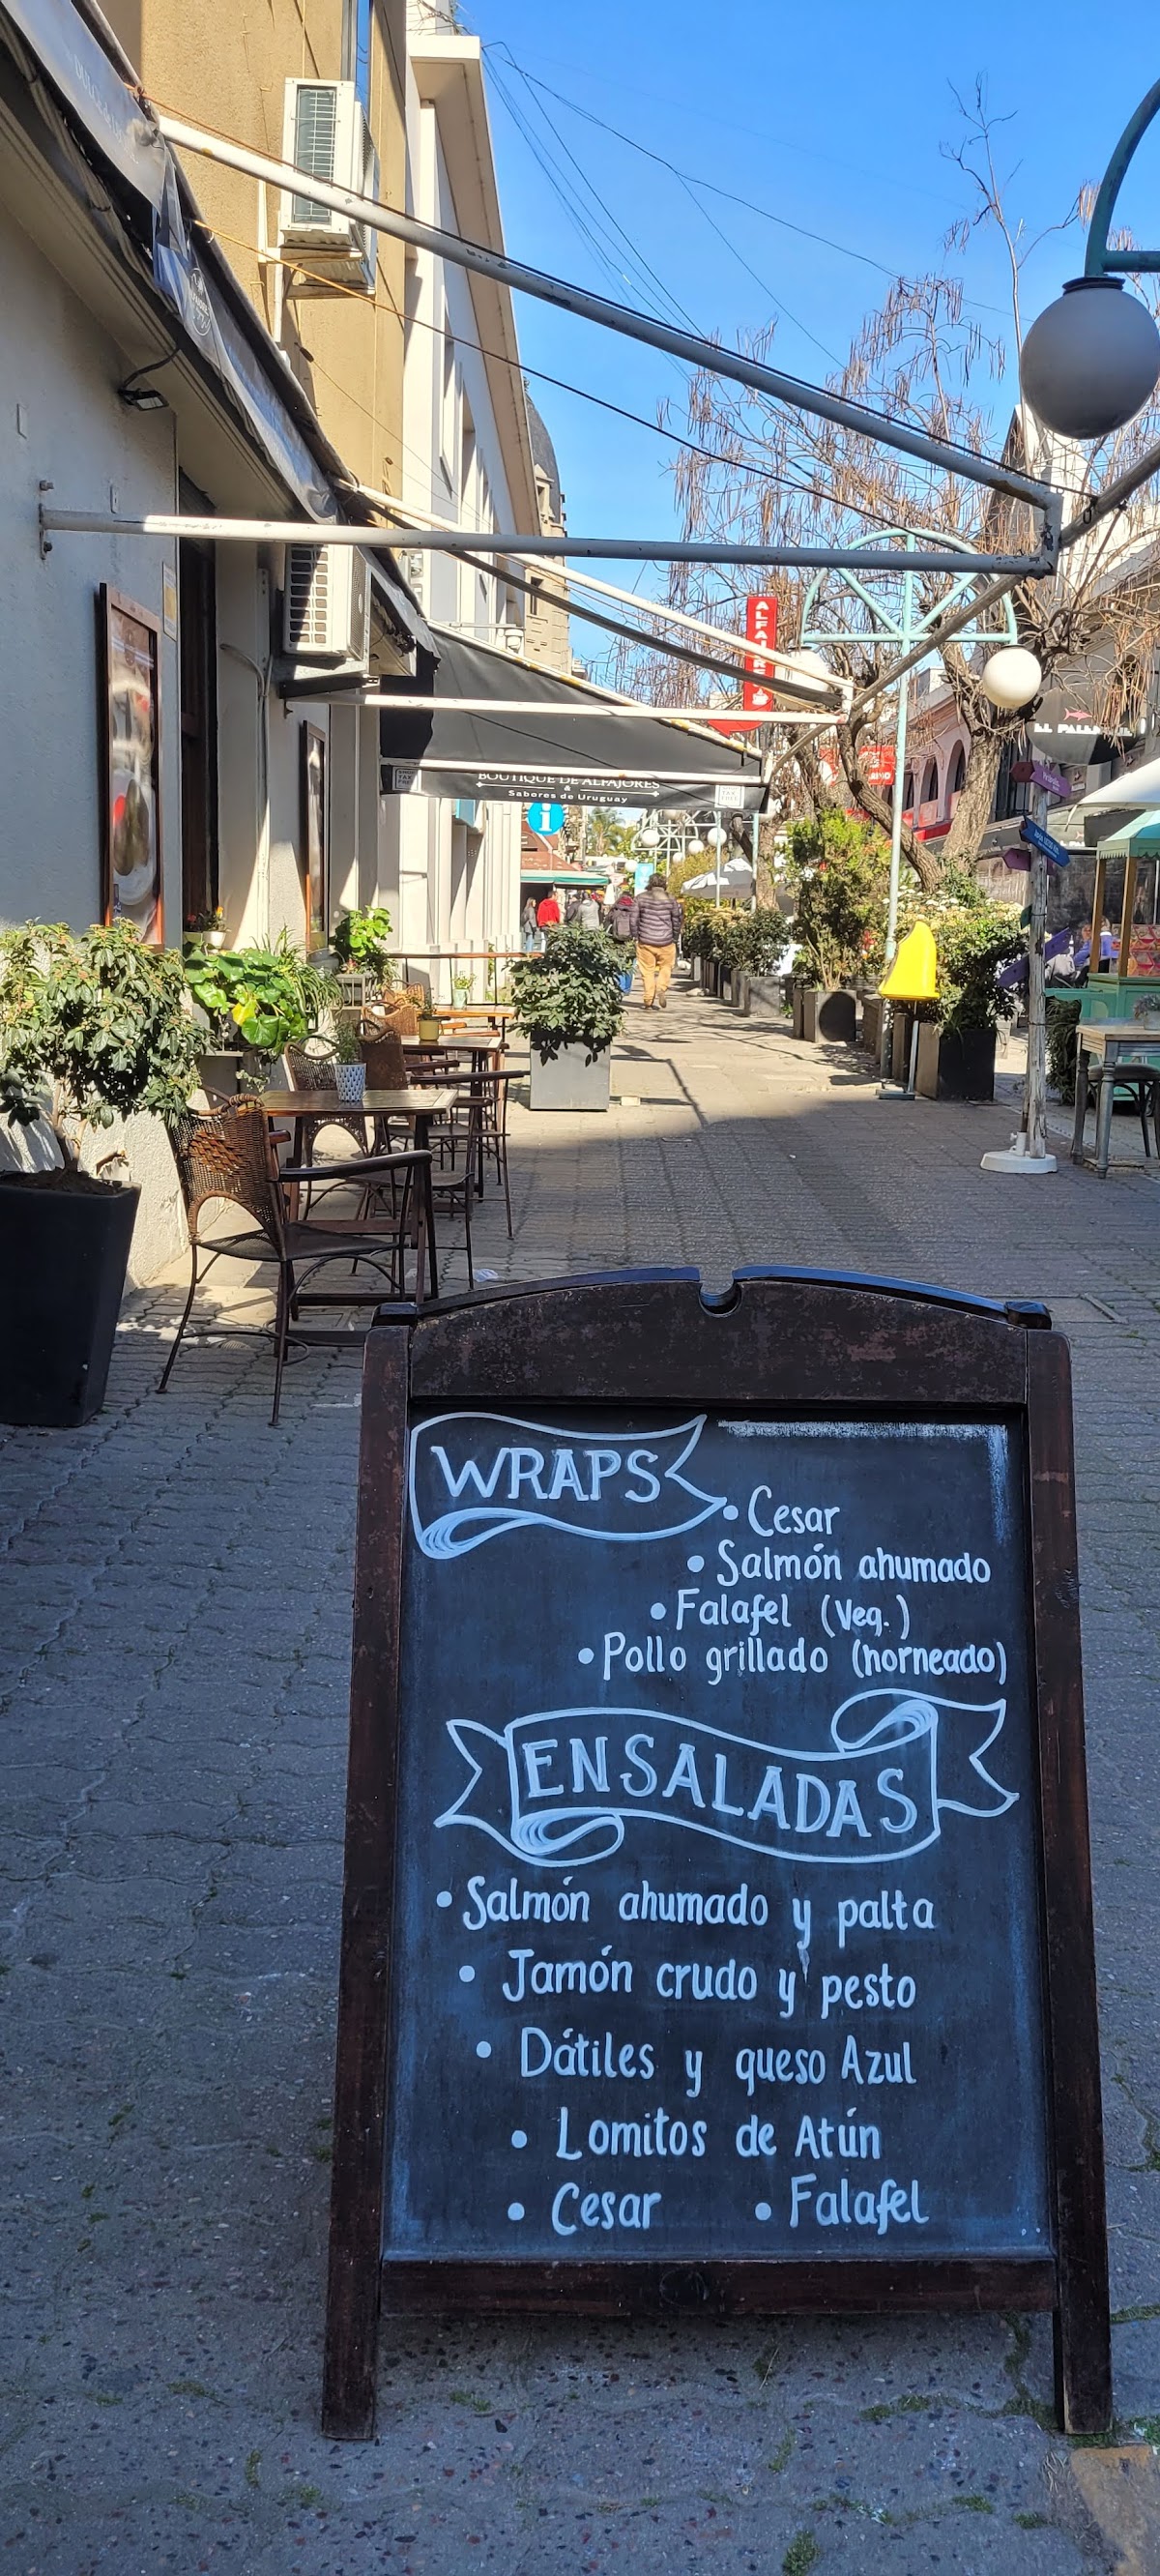 ALFAJORES
BOUTIQUE DE ALFAJORES
&
Sabores de Uruguay
i
WRAPS
• Cesar
• Salmón ahumado
• Falafel (Veg.)
• Pollo grillado (horneado)
ENSALADAS
• Salmón ahumado y palta
• Jamón crudo y pesto
• Dátiles y queso Azul
• Lomitos de Atún
• Cesar • Falafel